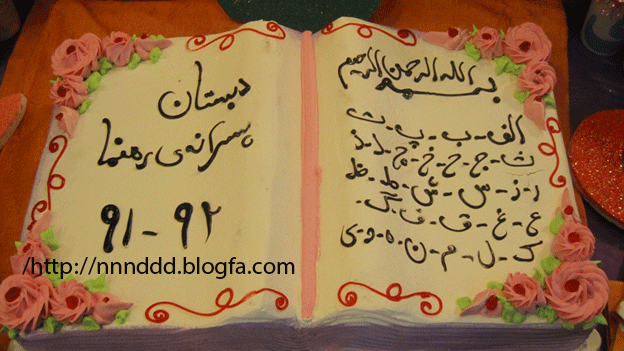 بسم الله الرحمن الرحیم
الف - ب - پ - ت
ث - ج - ح - خ - چ - د - ذ
ر - ز - س - ش - ط - ظ
ع - غ - ق - ف - گ
ک - ل - م - ن - ه - و - ی
دبستان
پسرانه‌ی رهنما
۹۱ - ۹۲
/http://nnnddd.blogfa.com